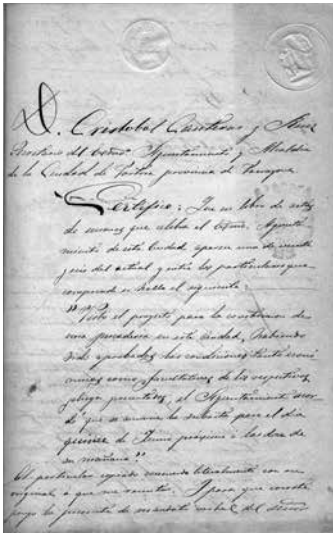 D. Cristobal Canteras y
Secretario del Excmo. Ayuntamiento y Alcaldia
de la Ciudad de Tortosa provincia de Tarragona
Certifico: Que en libro de actas
de sesiones que celebra el Excmo. Ayunta
miento de esta Ciudad aparece una de veinte
y seis del actual y entre los particulares que
comprende se halla el siguiente:
"Visto el proyecto para la construccion de
una pescaderia en esta ciudad, habiendo
sido aprobadas las condiciones tanto econó
micas como facultativas de los respectivos
pliegos presentados, el Ayuntamiento acor
dó que se anuncie la subasta para el dia
quince de Junio próximo á las doce de
su mañana."
El particular copiado concuerda literalmente con su
original á que me remito. Y para que conste
pongo la presente de mandato verbal del señor